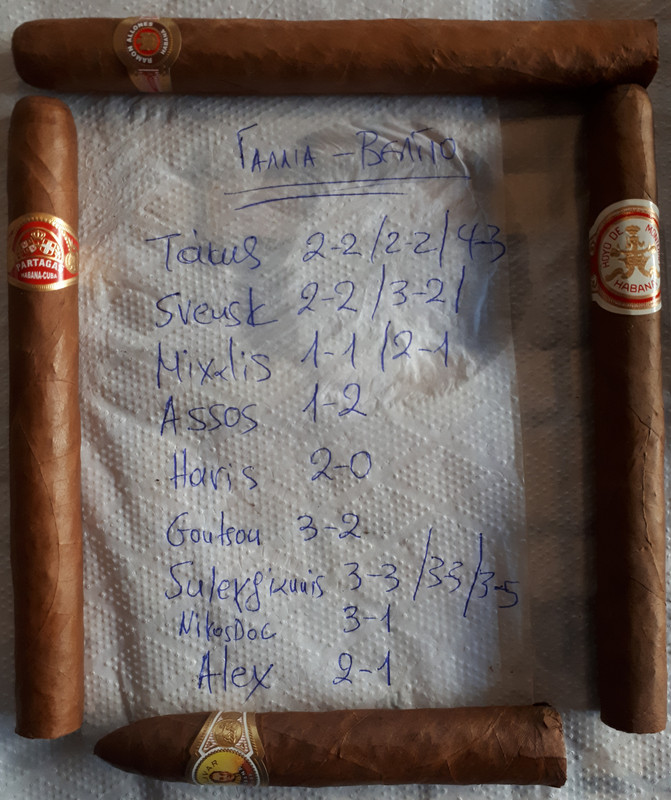 RAMON ALLONES HABANA
PARTAGAS
HABANA-CUBA
HOYO DE MO
HABANA
ΓΑΛΛΙΑ - ΒΕΛΓΙΟ
Tatus 2-2 / 2-2 / 4-3
Svensk 2-2 / 3-2 /
Mixalis 1-1 / 2-1
Assos 1-2
Haris 2-0
Goutsou 3-2
3-3 / 3-3 / 3-5
NikosDoc 3-1
Alex 2-1
VAR